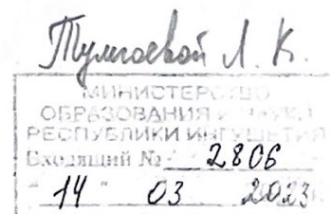 Тумгоевой Л. К.
МИНИСТЕРСТВО
ОБРАЗОВАНИЯ И НАУКИ
РЕСПУБЛИКИ ИНГУШЕТИЯ
Входящий № 2806
"14" 03 2023